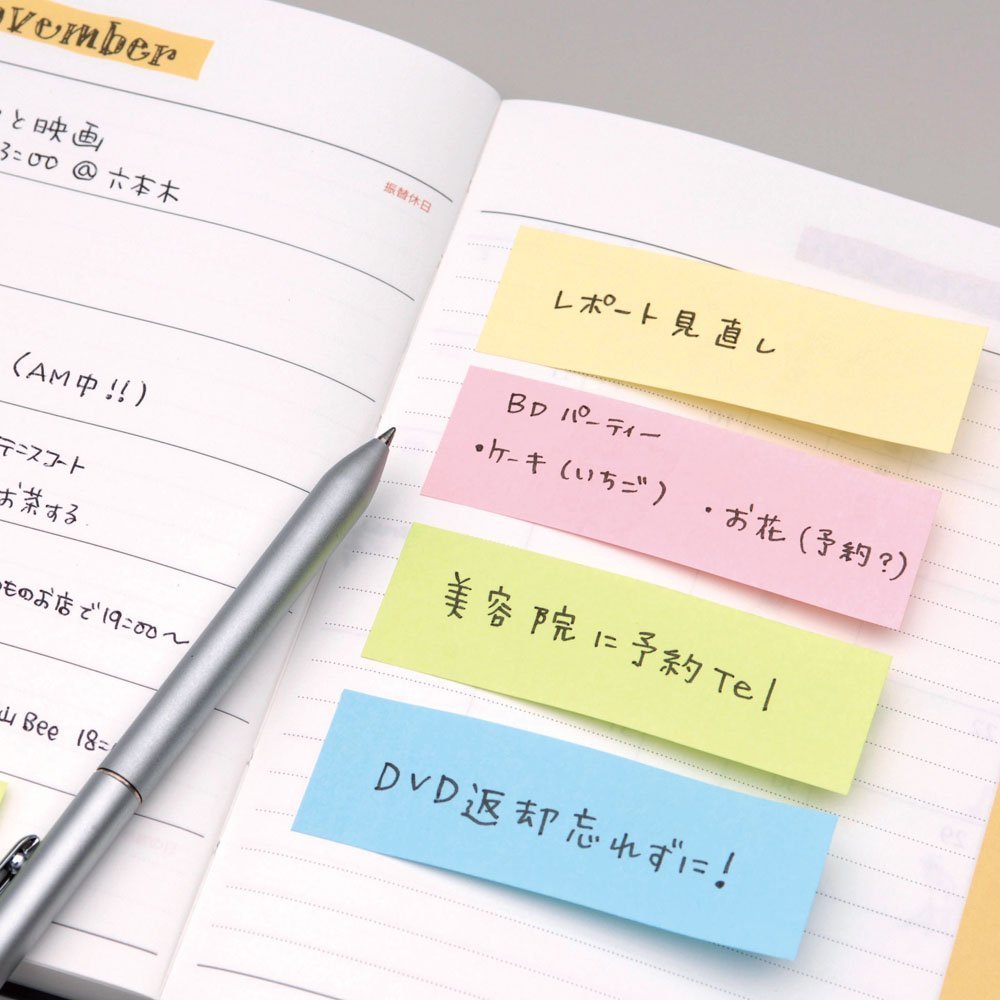 ovember
と映画
3:00 @ 六本木
振替休日
(AM中!!)
テニスコート
お茶する
ものお店で19:00〜
山Bee 18:
レポート見直し
BD パーティー
・ケーキ(いちご)
・お花(予約?)
美容院に予約Tel
DVD返却忘れずに!